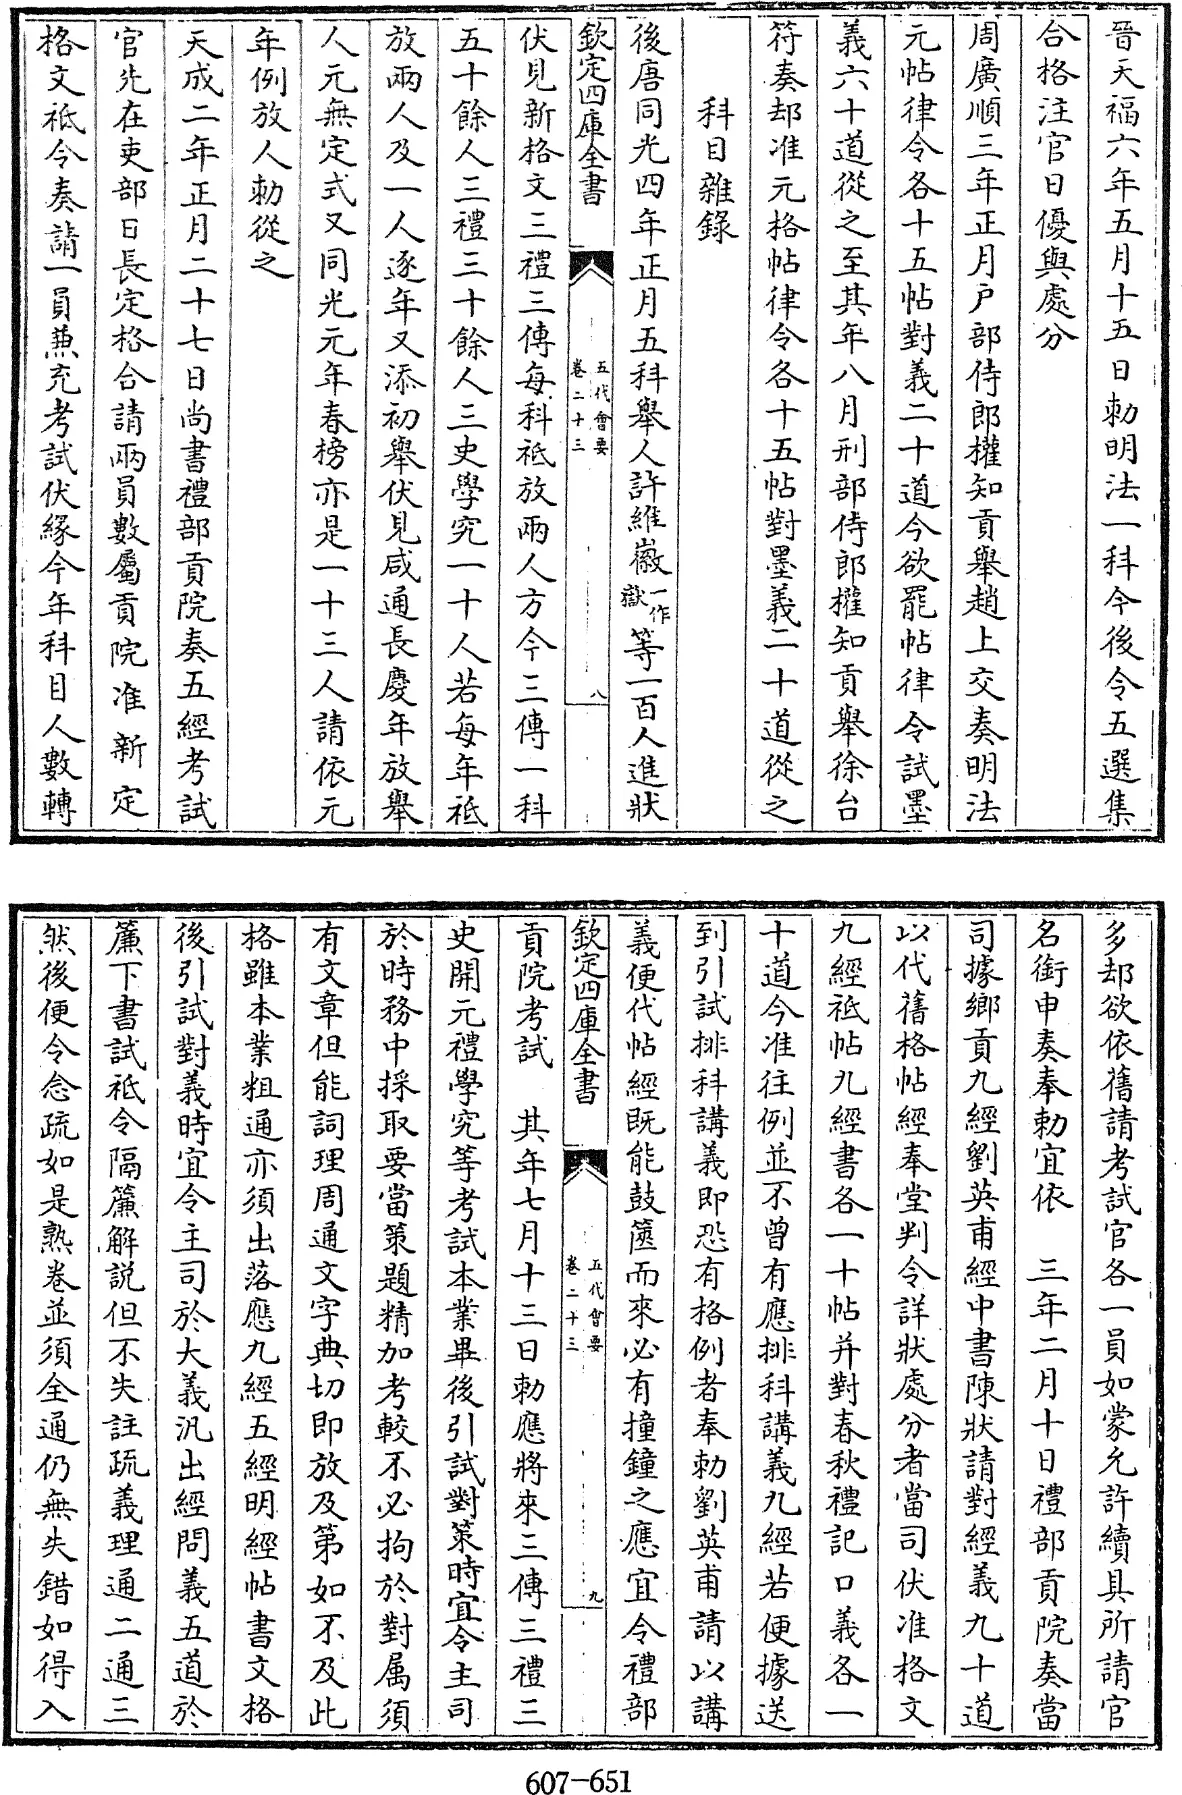 晉天福六年五月十五日勅明法一科今後令五選集
合格注官日優與處分
周廣順三年正月戸部侍郎權知貢舉趙上交奏明法
元帖律令各十五帖對義二十道今欲罷帖律令試墨
義六十道從之至其年八月刑部侍郎權知貢舉徐台
符奏却准元格帖律令各十五帖對墨義二十道從之
科目雜錄
後唐同光四年正月五科舉人許維嶽一作嶽等一百人進狀
欽定四庫全書
五代會要
卷二十三
八
伏見新格文三禮三傳每科祗放兩人方今三傳一科
五十餘人三禮三十餘人三史學究一十人若每年祗
放兩人及一人逐年又添初舉伏見咸通長慶年放舉
人元無定式又同光元年春榜亦是一十三人請依元
年例放人勅從之
天成二年正月二十七日尚書禮部貢院奏五經考試
官先在吏部日長定格合請兩員數屬貢院准新定
格文祗令奏請一員兼充考試伏緣今年科目人數轉
多却欲依舊請考試官各一員如蒙允許續具所請官
名銜申奏奉勅宜依 三年二月十日禮部貢院奏當
司據鄉貢九經劉英甫經中書陳狀請對經義九十道
以代舊格帖經奉堂判令詳狀處分者當司伏准格文
九經祗帖九經書各一十帖并對春秋禮記口義各一
十道今准往例並不曾有應排科講義九經若便據送
到引試排科講義即恐有格例者奉勅劉英甫請以講
義便代帖經既能鼓篋而來必有撞鐘之應宜令禮部
欽定四庫全書
五代會要
卷二十三
九
貢院考試 其年七月十三日勅應將來三傳三禮三
史開元禮學究等考試本業畢後引試對策時宜令主司
於時務中採取要當策題精加考較不必拘於對属須
有文章但能詞理周通文字典切即放及第如不及此
格雖本業粗通亦須出落應九經五經明經帖書文格
後引試對義時宜令主司於大義汎出經問義五道於
簾下書試祗令隔簾解說但不失註疏義理通二通三
然後便令念疏如是熟卷並須全通仍無失錯如得入
607-651